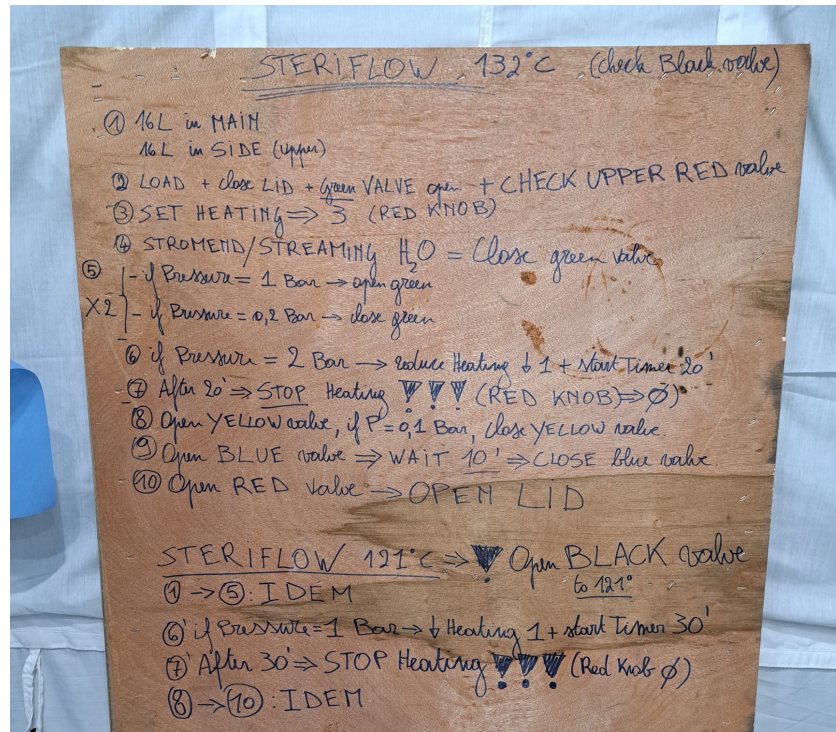 STERIFLOW 132°C (check Black valve)
① 16L in MAIN
16L in SIDE (upper)
② LOAD + close LID + green VALVE open + CHECK UPPER RED valve
③ SET HEATING ⇒ 3 (RED KNOB)
④ STROMEND/STREAMING H2O = Close green valve
⑤ - if Pressure = 1 Bar → open green
X2 - if Pressure = 0,2 Bar → close green
⑥ if Pressure = 2 Bar → reduce Heating ↓ 1 + start Timer 20'
⑦ After 20' ⇒ STOP Heating !!! (RED KNOB ⇒ Ø)
⑧ Open YELLOW valve, if P = 0,1 Bar, close YELLOW valve.
⑨ Open BLUE valve ⇒ WAIT 10' ⇒ CLOSE blue valve.
⑩ Open RED valve → OPEN LID
STERIFLOW 121°C ⇒ ! Open BLACK valve
to 121°
① → ⑤ : IDEM
⑥' if Pressure = 1 Bar → ↓ Heating 1 + start Timer 30'
⑦' After 30' ⇒ STOP Heating !!! (Red Knob Ø)
⑧ → ⑩ : IDEM